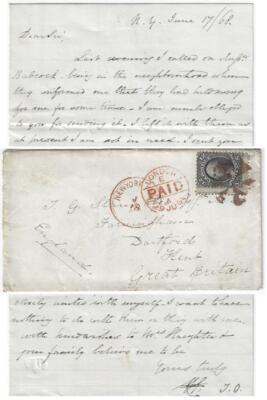 N.Y. June 17/68.
Dear Sir,
Last evening I called on Messrs.
Babcock being in the neighborhood when
they informed me that they had
for me for some time. I am much obliged
to you for sending it. I left it with them as
at present I am not in need. I sent you
NEW YORK
LONDON
PAID
T. G.
Dartford
Kent
England
Great Britain
unites with myself. I want to have
nothing to do with them or they with me.
with kind wishes to Mrs Slaughter &
your family believe me to be
Yours truly
T. O.